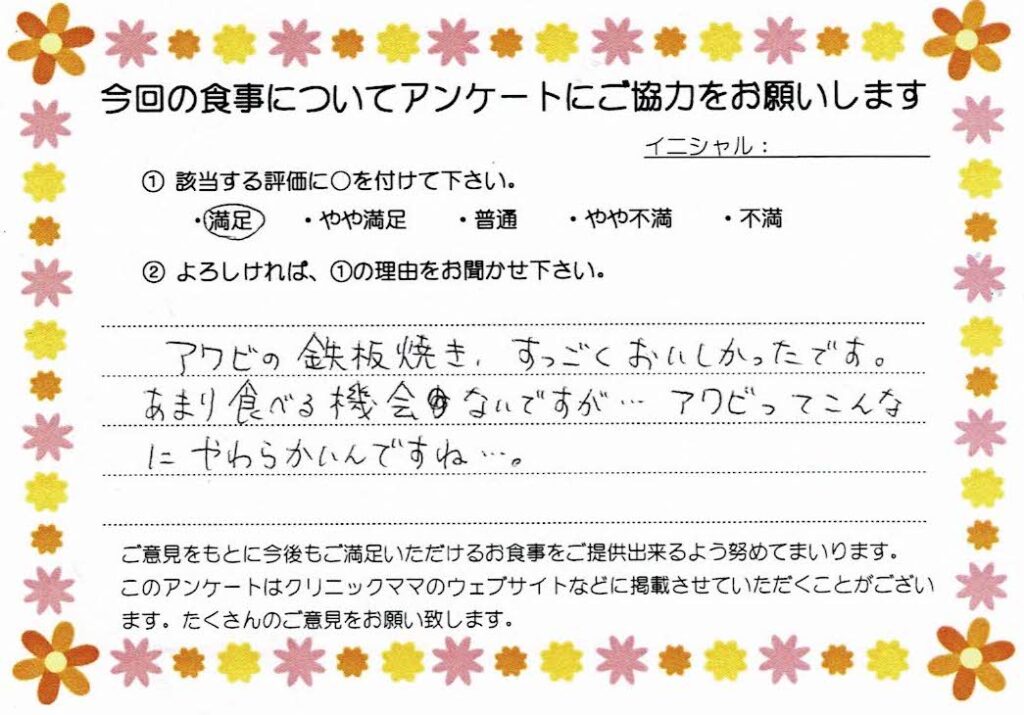 今回の食事についてアンケートにご協力をお願いします
イニシャル：
① 該当する評価に○を付けて下さい。
・満足 ・やや満足 ・普通 ・やや不満 ・不満
② よろしければ、①の理由をお聞かせ下さい。
アワビの鉄板焼き、すっごくおいしかったです。
あまり食べる機会のないですが… アワビってこんな
にやわらかいんですね…。
ご意見をもとに今後もご満足いただけるお食事をご提供出来るよう努めてまいります。
このアンケートはクリニックママのウェブサイトなどに掲載させていただくことがござい
ます。たくさんのご意見をお願い致します。